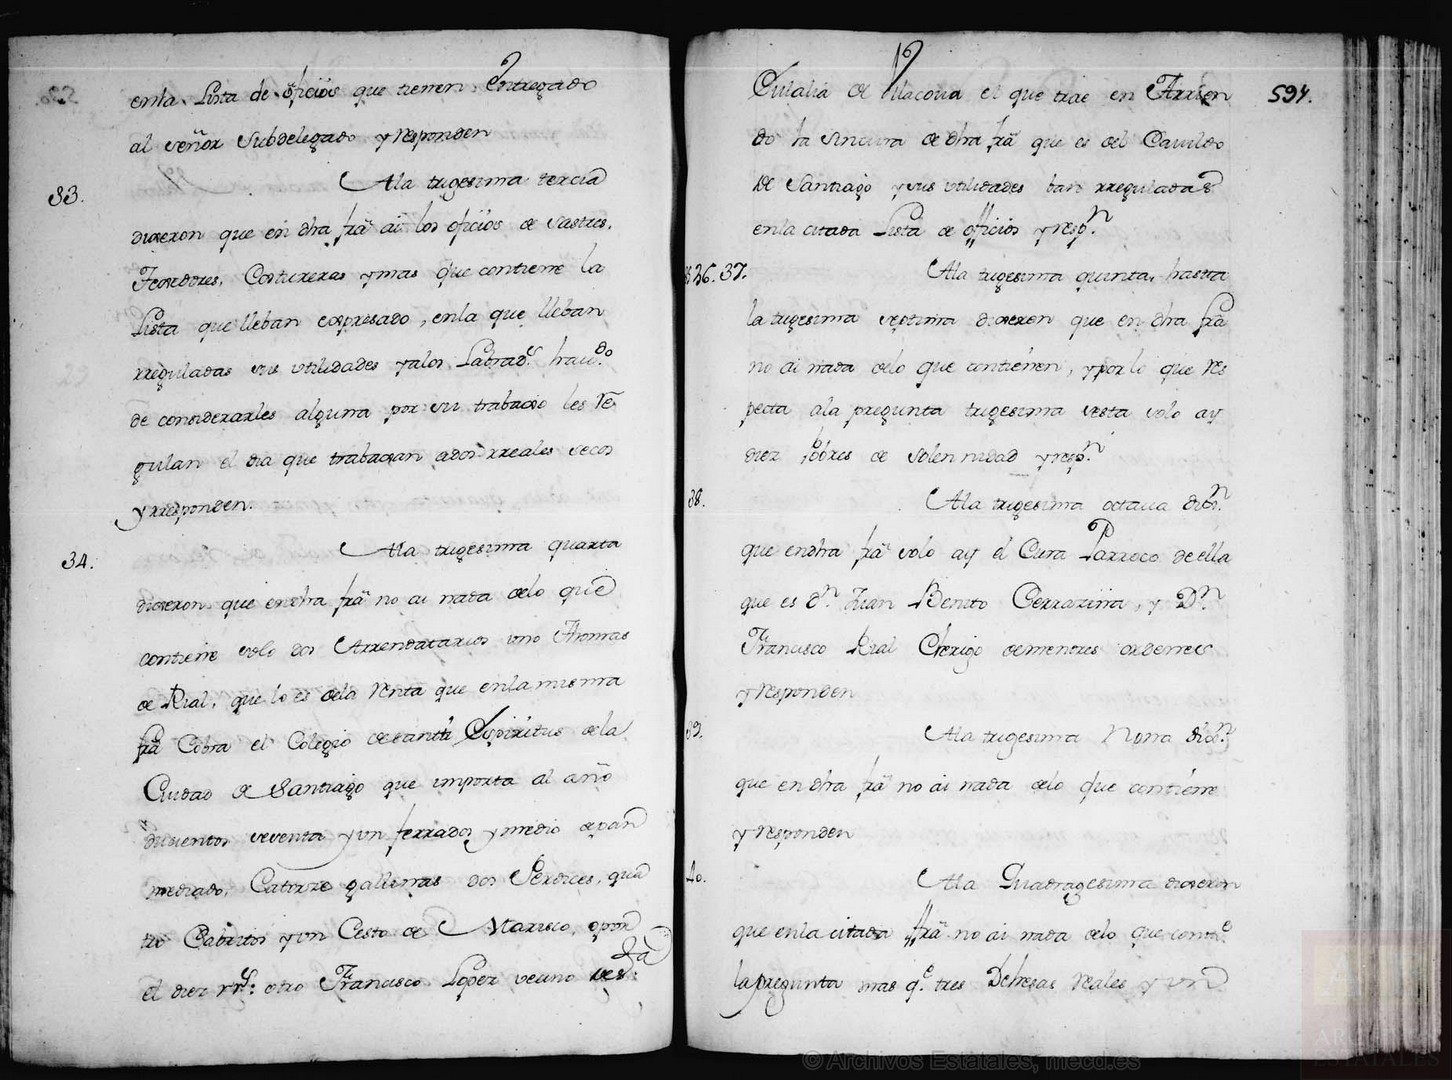 enla Lista de ôficiôs que tienen Entregado
al señor Subdelegado y rresponden
33.
Ala trigesima tercia
dixeron que en dha frã ai los oficios de sastres,
Texedores, Costureras y mas que contiene la
Lista que lleban expresado, enla que lleban
rreguladas sus utilidades y alos Labrads. haudo.
de considerarles alguna por su trabaxo les rẽ
gulan el dia que trabaxan a dos rreales secos
y rresponden.
34.
Ala trigesima quarta
dixeron que en dha frã no ai nada delo que
contiene solo dos Arrendatarios uno Thomas
de Rial, que lo es dela renta que enla misma
frã Cobra el Colegio de santi Espiritus dela
Ciudad de Santiago que importa al año
duscientos sesenta y un ferrados y medio de pan
mediado, Catorze gallinas dos Perdices, qua
tro Cabritos y un Cesto de Marisco, o por
el diez rrs: otro Francisco Lopez vezino de S:ta
Eulalia de Vilacova el que trae en Arrien
594.
do la sincura de dha frã que es del Cavildo
de Santiago y sus utilidades ban rreguladas
enla citada Lista de oficios y respn.
36. 37.
Ala trigesima quinta, hasta
la trigesima septima dixeron que en dha frã
no ai nada delo que contienen, y por lo que res
pecta ala pregunta trigesima sesta solo ay
diez pobres de solemnidad y respn.
38.
Ala trigesima octaua dixn.
que en dha frã solo ay el Cura Parroco de ella
que es Dn. Juan Benito Cerrazina, y Dn.
Francisco Rial Clerigo de menores ordenes
y responden
39.
Ala trigesima Nona dixn.
que en dha frã no ai nada delo que contiene
y responden
40.
Ala Quadragesima dixeron
que enla citada frã no ai nada delo que conte.
la pregunta mas qe. tres Dehesas reales y un
© Archivos Estatales, mecd.es
ARCHIVOS
ESTATALES